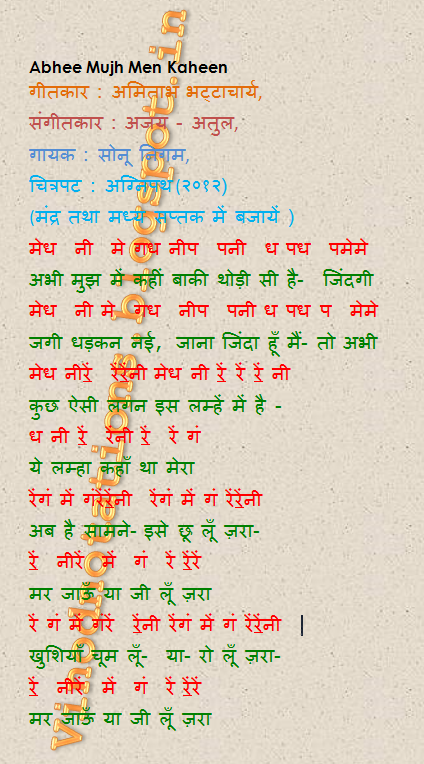 Abhee Mujh Men Kaheen
गीतकार : अमिताभ भट्टाचार्य,
संगीतकार : अजय - अतुल,
गायक : सोनू निगम,
चित्रपट : अग्निपथ(२०१२)
(मंद्र तथा मध्य सप्तक में बजायें )
मेध नी मे गध नीप पनी ध पध पमेमे
अभी मुझ में कहीं बाकी थोड़ी सी है- जिंदगी
मेध नी मे गध नीप पनी ध पध प मेमे
जगी धड़कन नई, जाना जिंदा हूँ मैं- तो अभी
मेध नीरें॒ रें॒रें॒नी मेध नी रें॒ रें॒ रें॒ नी
कुछ ऐसी लगन इस लम्हें में है -
ध नी रें॒ रेंनी रें॒ रें गं
ये लम्हा कहाँ था मेरा
रेंगं में गंरेंरें॒नी रेंगं में गं रेंरें॒नी
अब है सामने- इसे छू लूँ ज़रा-
रें॒ नीरें में गं रें रें॒रें
मर जाऊँ या जी लूँ ज़रा
रें गं में गंरें रें॒नी रेंगं में गं रेंरें॒नी
खुशियाँ चूम लूँ- या- रो लूँ ज़रा-
रें॒ नीरें में गं रें रें॒रें
मर जाऊँ या जी लूँ ज़रा
vinodnotations.blogspot.in